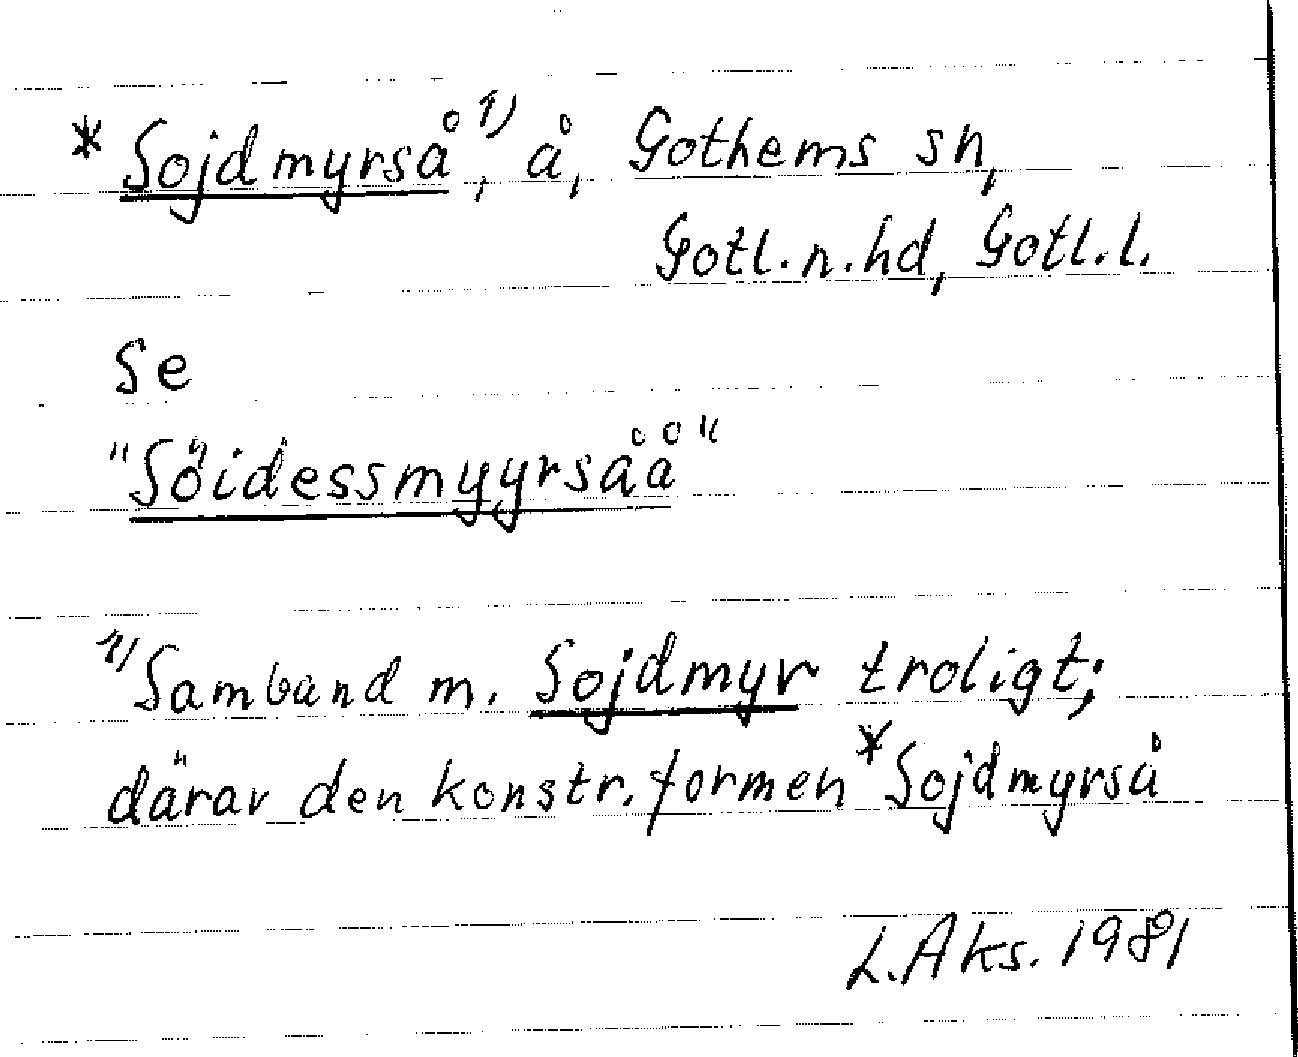 * Sojdmyrså¹⁾, å, Gothems sn,
Gotl.n.hd, Gotl.l.
Se
"Söidessmyyrsåå"
¹⁾Samband m. Sojdmyr troligt;
därav den konstr. formen *Sojdmyrså
L.Aks. 1981